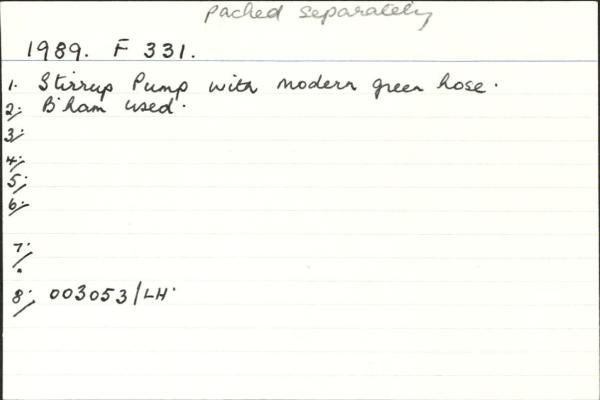 packed separately
1989. F 331.
1. Stirrup Pump with modern green hose.
2. B'ham used.
3.
4.
5.
6.
7.
8. 003053/LH.